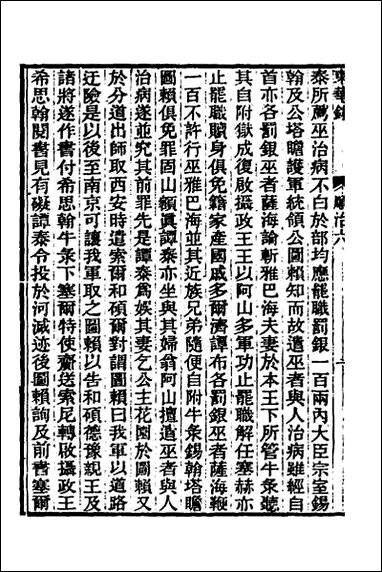 東華錄 順治六
泰所薦巫治病不白於部均應罷職罰銀一百兩內大臣宗室錫
翰及公塔瞻護軍統領公圖賴知而故遣巫者與人治病雖經自
首亦各罰銀巫者薩海論斬雅巴海夫妻於本王下所管牛彔聽
其自附獄成復啟攝政王王以阿山多軍功止罷職解任塞赫亦
止罷職贖身俱免籍家產國戚多爾濟譚布各罰銀巫者薩海鞭
一百不許行巫雅巴海並其近族兄弟隨便自附牛彔錫翰塔瞻
圖賴俱免罪固山額眞譚泰亦坐與其婦翁阿山擅遣巫者與人
治病遂並究其前罪先是譚泰爲娛其妻乞公主花園於圖賴又
於分道出師取西安時遣索爾和碩爾對謂圖賴曰我軍以道路
迂險是以後至南京可讓我軍取之圖賴以告和碩德豫親王及
諸將遂作書付希思翰牛彔下塞爾特使齎送索尼轉啟攝政王
希思翰閱書見有礙譚泰令投於河滅迹後圖賴詢及前書塞爾